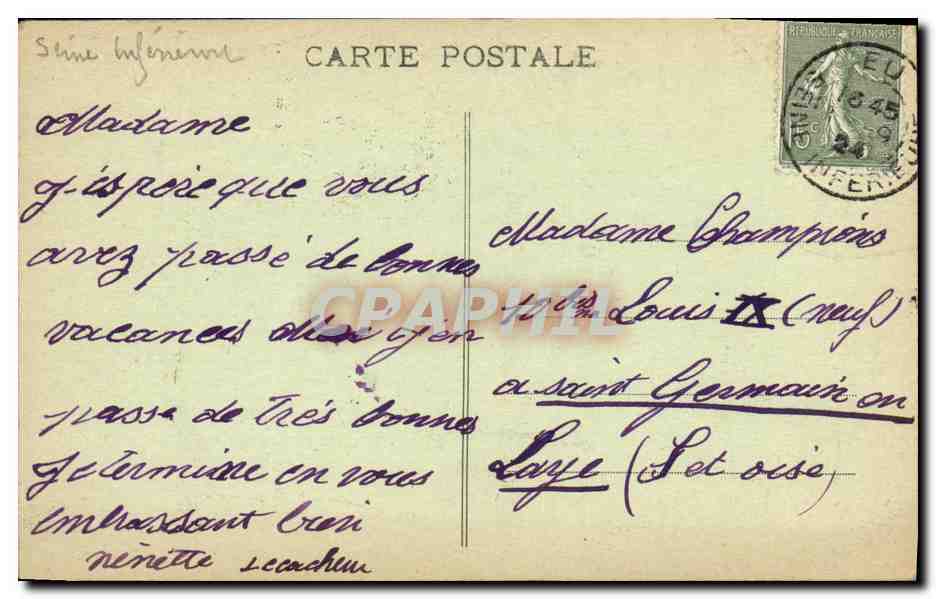 Seine Inférieure
CARTE POSTALE
REPUBLIQUE FRANÇAISE
EU
18 45
9
24
SEINE INFERIEURE
Madame
J'éspère que vous
avez passé de bonnes
vacances moi j'en
passe de très bonnes
Je termine en vous
embrassant bien
nénette Lecacheur
Madame Champions
10 bis rue Louis IX (neuf)
a saint Germain en
Laye (S et oise)
CPAPHIL